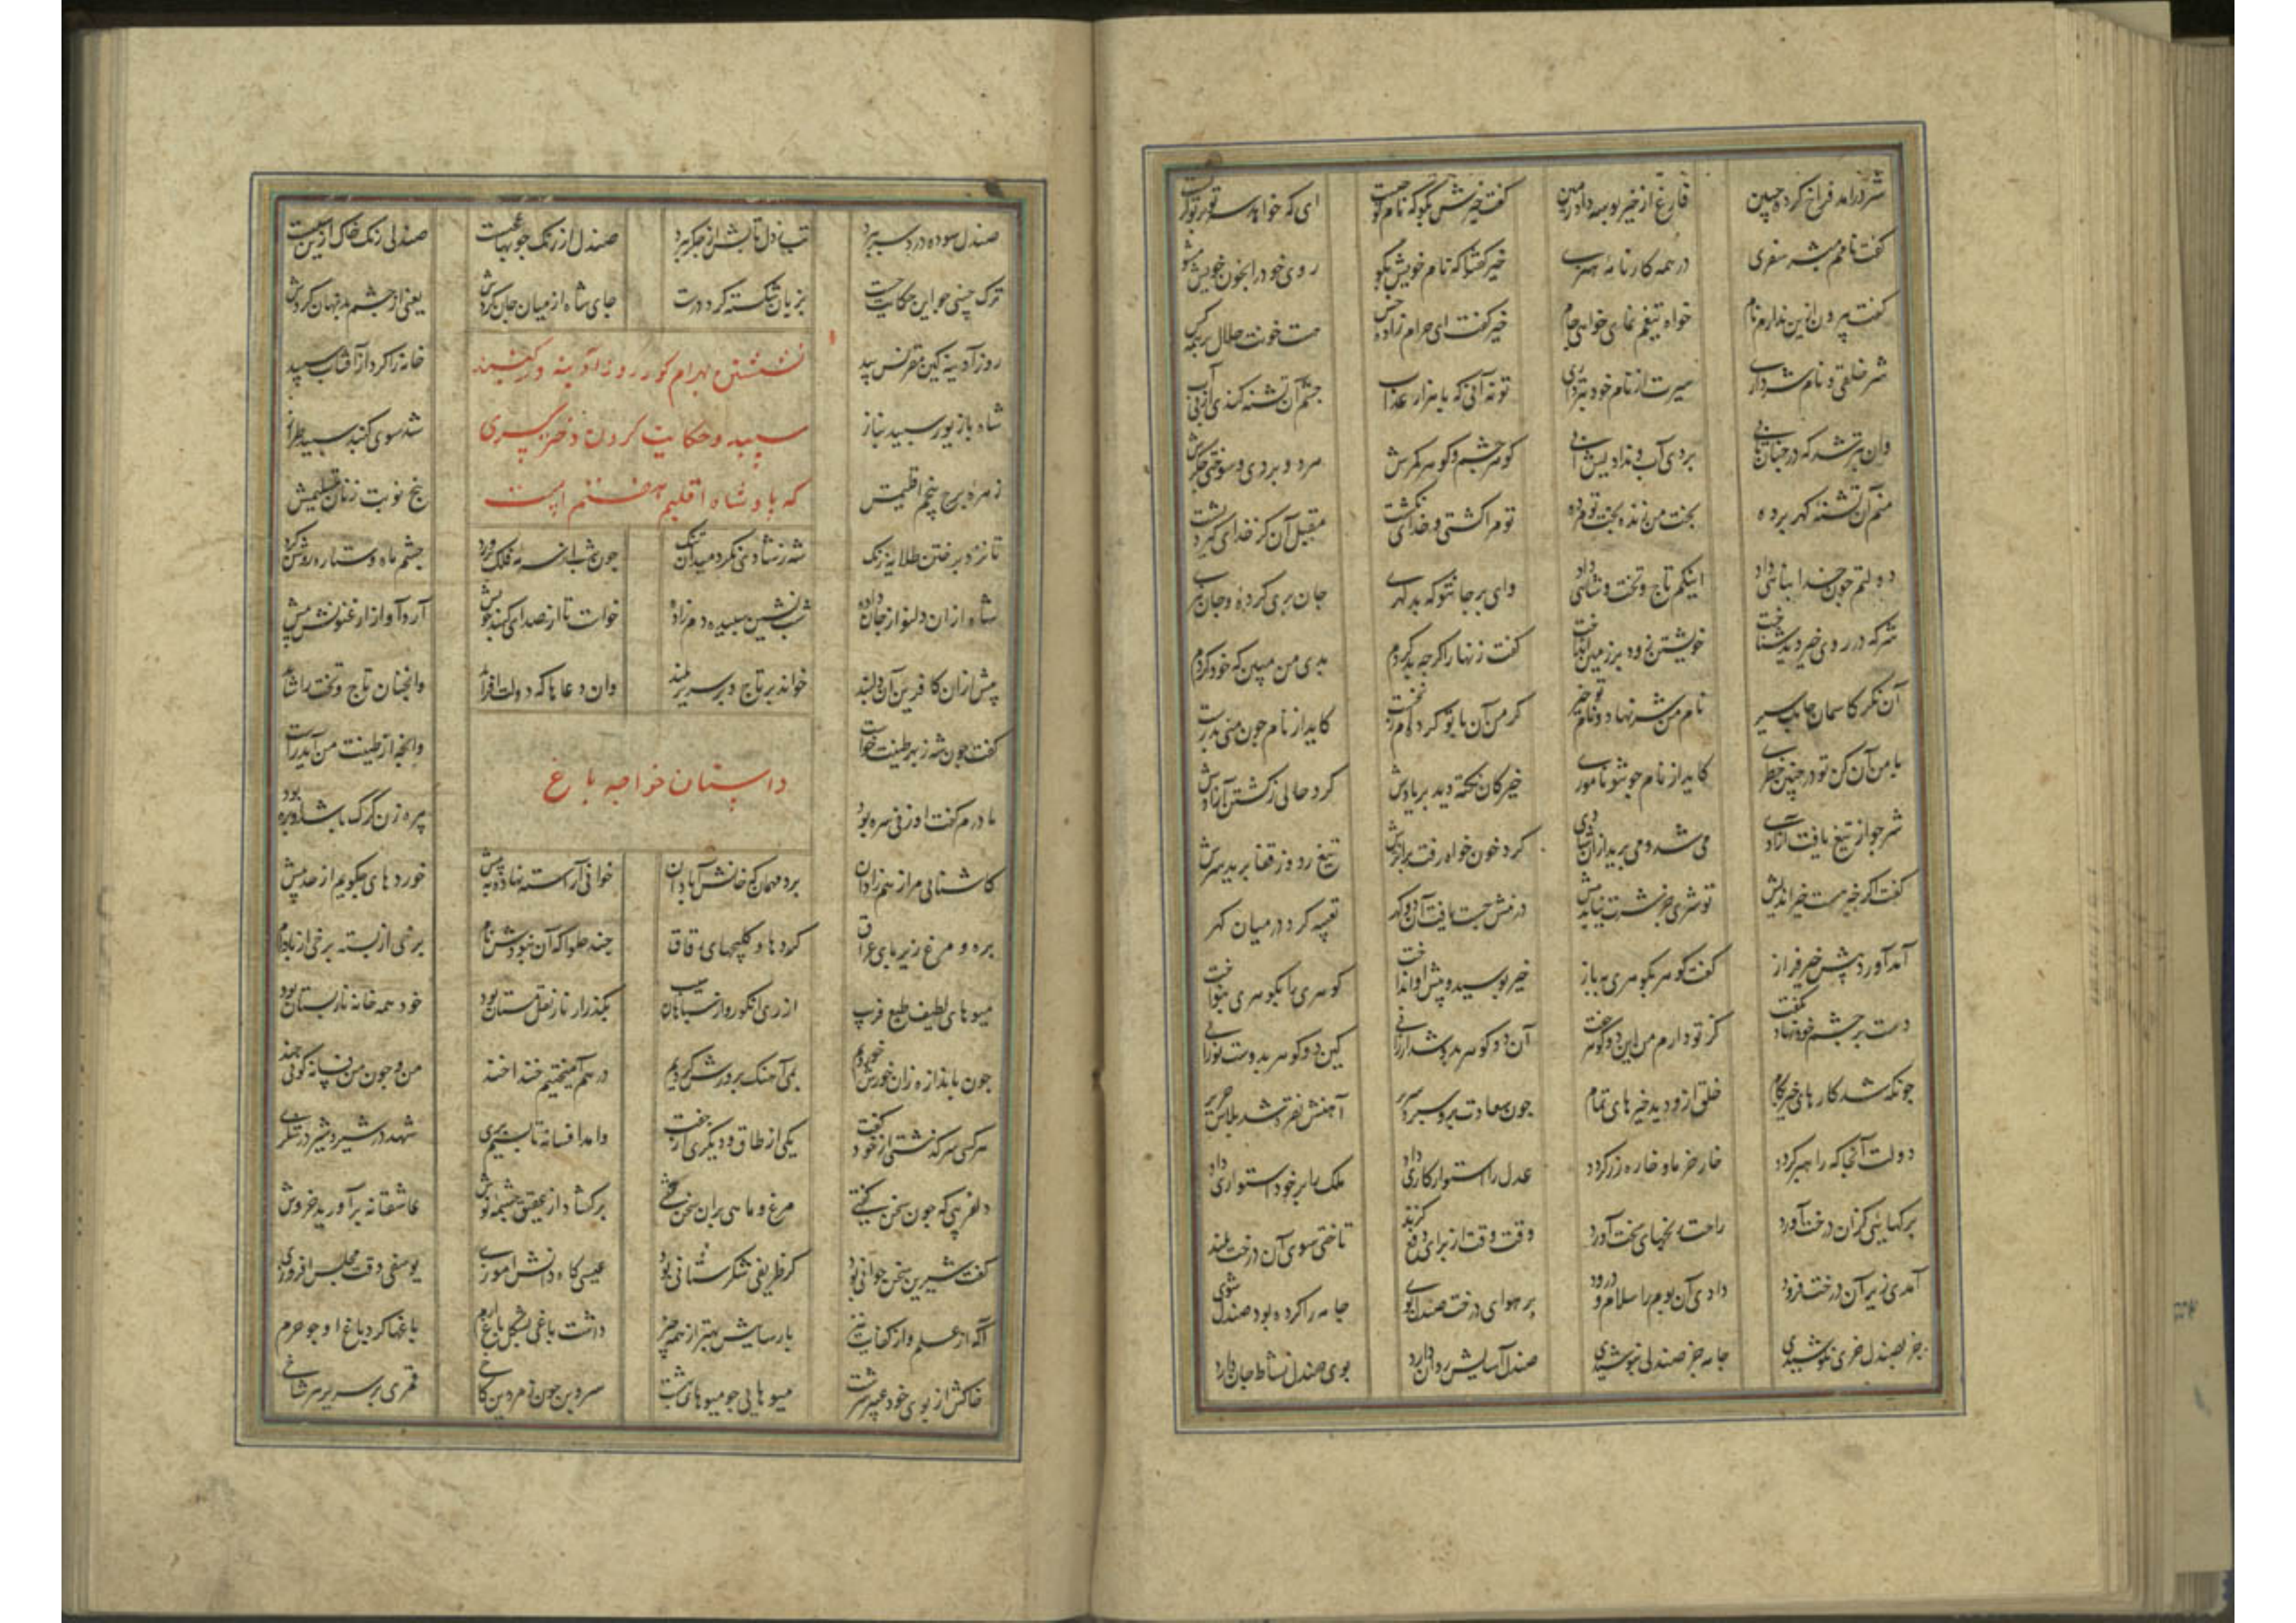 شر درآمد فراخ کرده جبین فارغ از خیر بوسه داد زمین گفت خیرش بگو که نام تو چیست ای که خواهد سر تو بر تو گریست
گفت نامم مبشر سفری در همه کارنامهٔ هنری خیر گفتا که نام خویش بگو روی خود را بخون خویش بشو
گفت بیرون ازین ندارم نام خواه تیغم نمای خواهی جام خیر گفت ای حرام زاده خس هست خونت حلال بر همه کس
شر خلقی و نام شر داری سیرت از نام خود بتر داری تو نه آنی که با هزار عذاب چشم آن تشنه کندی از پی آب
وان بتر شد که در چنان تابی بردی آب و ندادیش آبی گوهر چشم و گوهر کمرش هر دو بردی و سوختی جگرش
منم آن تشنه گهر برده بخت من زنده بخت تو مرده تو مرا کشتی و خدای نکشت مقبل آن کز خدای گیرد پشت
دولتم چون خدا پناهی داد اینکم تاج و تخت و شاهی داد وای بر جان تو که بدگهری جان بری کرده و جان نبری
شر که در روی خیر دید شناخت خویشتن زود بر زمین انداخت گفت زنهار اگرچه بد کردم بدی من مبین که خود کردم
آن نگر کاسمان چابک سیر نام من شر نهاد و نام تو خیر گر من آن با تو کرده‌ام ز نخست کاید از نام چون منی بدرست
با من آن کن تو در چنین خطری کاید از نام چو تو ناموری خیر کان نکته دید بر یادش کرد حالی ز کشتن آزادش
شر چو از تیغ یافت آزادی می شد و می پرید از آن شادی کرد خون خواه رفت بر اثرش تیغ زد وز قفا برید سرش
گفت اگر خیر هست خیر اندیش تو شری جز شرت نیاید پیش در تنش جست یافت آن دو گهر تعبیه کرده در میان کمر
آمد آورد پیش خیر فراز گفت گوهر بگوهری باز خیر بوسید و پیش او انداخت گوهری را بگوهری بنواخت
دست بر چشم خود نهاد بگفت کز تو دارم من این دو گوهر جفت آن دو گوهر بدو شد ارزانی کین دو گوهر بدوست نورانی
چونکه شد کارهای خیر بکام خلق ازو دید خیرهای تمام چون سعادت بدو سپرد سریر آهنش نقره شد پلاس حریر
دولت آنجا که راهبر گردد خار خرما و خاره زر گردد عدل را استوار کاری داد ملک را بر خود استواری داد
برگهایی کزان درخت آورد راحت رنجهای سخت آورد وقت وقت از برای دفع گزند تاختی سوی آن درخت بلند
آمدی زیر آن درخت فرود دادی آن بوم را سلام و درود بر هوای درخت صندل بوی جامه را کرده بود صندل شوی
جز بصندل خری نکوشیدی جامه جز صندلی نپوشیدی صندل آسایش روان دارد بوی صندل نشاط جان دارد
صندل سوده درد سر ببرد تب ز دل تابش از جگر ببرد صندل از رنگ صندلی رنگ خاک ازین
ترک چینی چو این حکایت چست بزبان شکسته کرد درست جای شاه از میان جان کردش یعنی از چشم بد نهان کردش
نشستن بهرام گور روز آدینه در گنبد
سپید و حکایت کردن دختر
که پادشاه اقلیم هفتم است
روز آدینه کین مقرنس بید خانه را کرد از آفتاب سپید
شاه با زیور سپید بناز شد سوی گنبد سپید فراز
زهره بر برج پنجم اقلیمش پنج نوبت زنان بتسلیمش
تا نزد بر ختن طلایه زنگ شه ز شادی نکرد میدان تنگ چون شب از سرمه فلک پرورد چشم ماه و ستاره روشن کرد
شاه ازان دلنواز جان داده شب نشین سپیده دم زاده خواست تا از صدای گنبد خویش آرد آواز ارغنونش پیش
پس ازان کافرین آن دلبند خواند بر تاج و بر سریر بلند وان دعاها که دولت افزاید وانچنان تاج و تخت را شاید
گفت چون شه ز بهر طیبت خواست وانچه از طیبت من آید راست
داستان خواجه باغ
مادرم گفت او زنی سره بود پیره زن گرگ باشد او بره بود
کاشنایی مرا ز همزادان برد مهمان که خانش آبادان خوانی آراسته نهاده به پیش خوردهای چگویم از حد بیش
بره و مرغ و زیربای عراق گردها و کلیچهای رقاق چند حلوا که آن نبودش نام برخی از پسته برخی از بادام
میوهای لطیف طبع فریب از ری انگور و از سپاهان سیب بگذر از نار نقل مستان بود خود همه خانه نارپستان بود
چون باندازه زان خورش خوردیم بمی آهنگ پرورش کردیم در هم آمیختیم خنداخند من و چون من فسانه گوئی چند
هر کسی سرگذشتی از خود گفت یکی از طاق و دیگری از جفت وامد افسانه تا بسیمبری شهد در شیر و شیر در شکری
دلفریبی که چون سخن گفتی مرغ و ماهی بران سخن خفتی برگشاد از عقیق چشمه نوش عاشقانه برآورید خروش
گفت شیرین سخن جوانی بود کز ظریفی شکرستانی بود عیسی گاه دانش آموزی یوسفی وقت مجلس افروزی
آگه از علم و از کفایت نیز پارسایش بهتر از همه چیز داشت باغی بشکل باغ ارم باغها گرد باغ او چو حرم
خاکش از بوی خود عبیر سرشت میوهایی چو میوهای بهشت سروبن چون زمردین کاخی قمری بر سریر هر شاخی